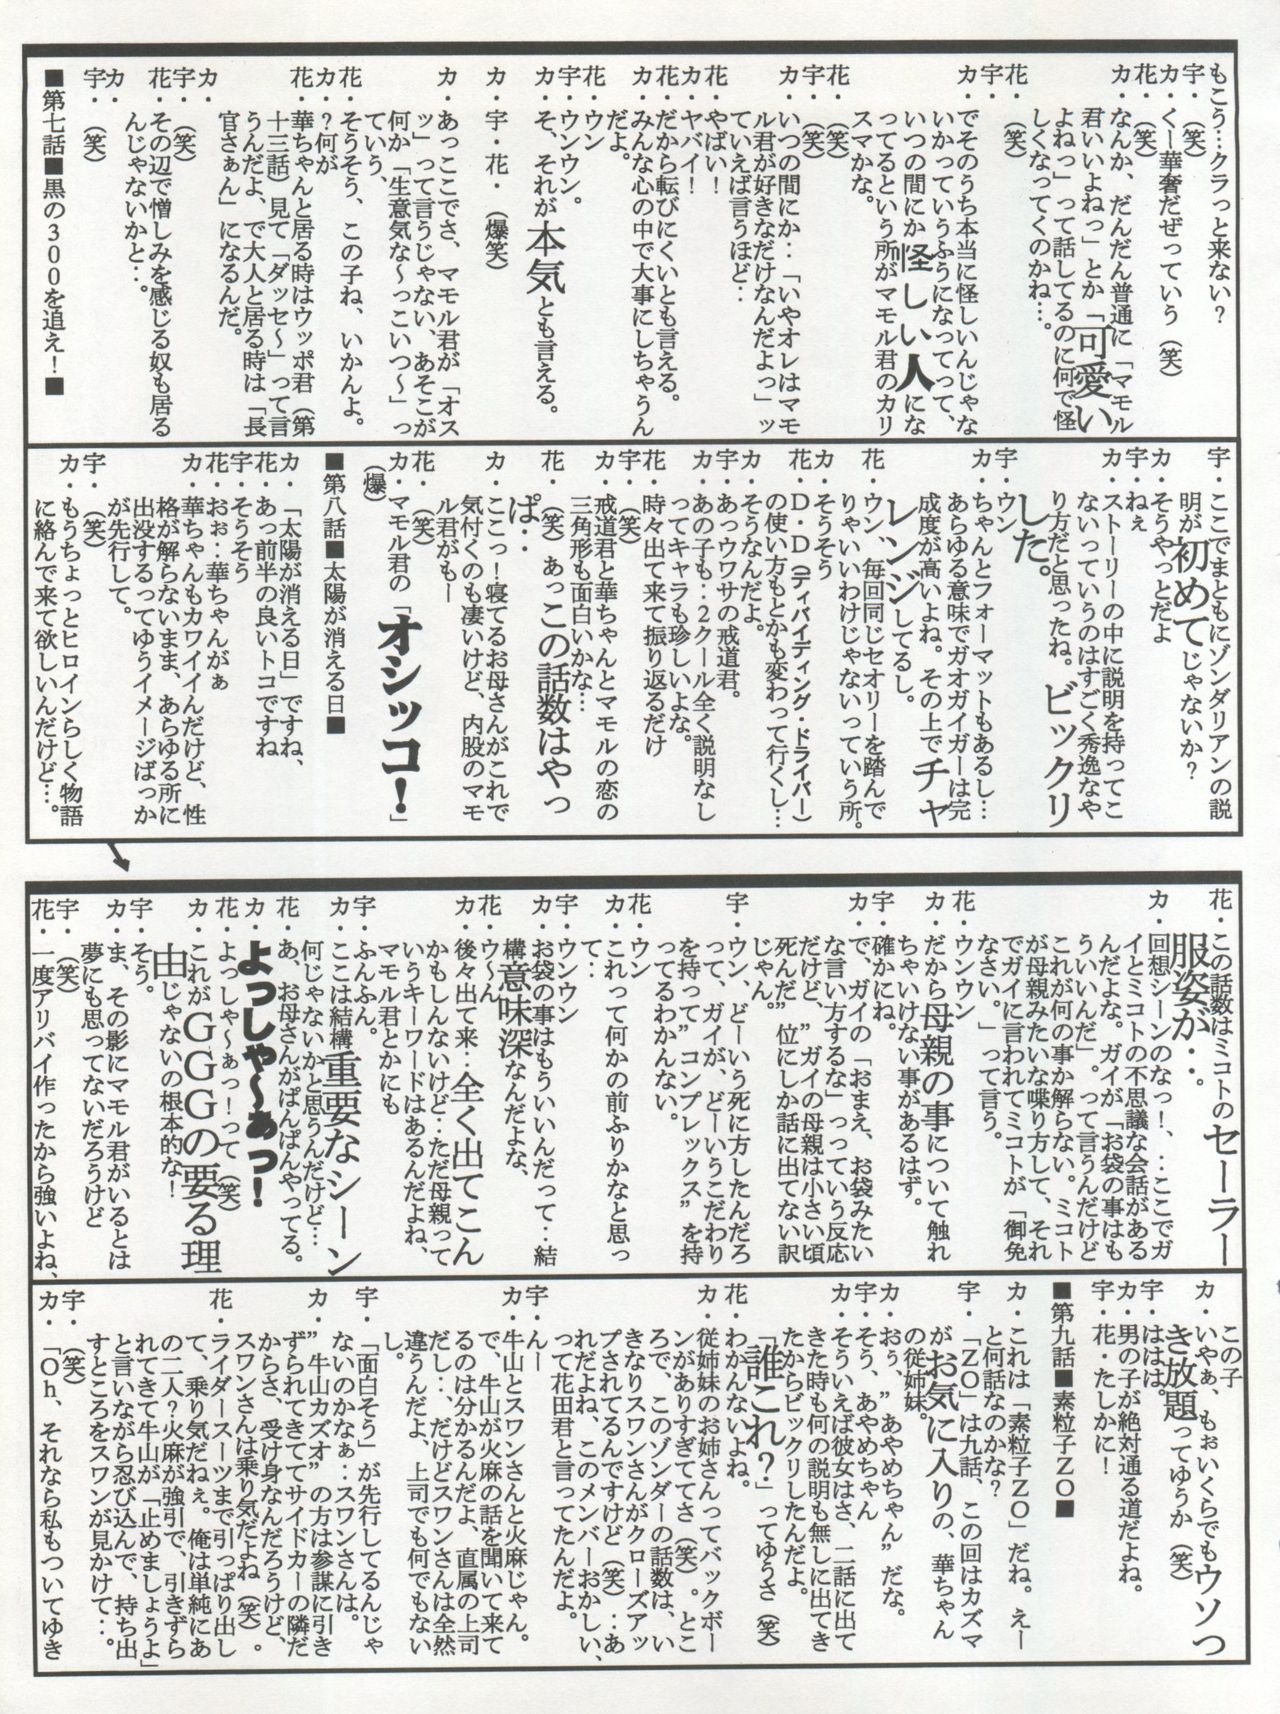 もこう…クラっと来ない？
宇・（笑）
カ・くー華奢だぜっていう（笑）
花・（笑）
カ・なんか、だんだん普通に「マモル
君いいよねっ」とか「可愛い
よねっ」って話してるのに何で怪
しくなってくのかね…。
花・（笑）
宇・
カ・でそのうち本当に怪しいんじゃな
いかっていうふうになってって、
いつの間にか怪しい人にな
ってるという所がマモル君のカリ
スマかな。
花・（笑）
宇・（笑）
カ・いつの間にか‥「いやオレはマモ
ル君が好きなだけなんだよっ」ッ
ていえば言うほど‥
花・やばい！
カ・ヤバイ！
花・だから転びにくいとも言える。
カ・みんな心の中で大事にしちゃうん
だよ。
花・ウン
宇・ウンウン。
カ・そ、それが本気とも言える。
カ・宇・花・（爆笑）
カ・あっここでさ、マモル君が「オス
ッ」って言うじゃない、あそこが
何か「生意気な〜っこいつ〜」っ
ていう、
花・そうそう、この子ね、いかんよ。
カ・？何が
花・華ちゃんと居る時はウッポ君（第
十三話）見て「ダッセ〜」って言
うんだよ、で大人と居る時は「長
官さぁん」になるんだ。
カ・
宇・（笑）
花・その辺で憎しみを感じる奴も居る
んじゃないかと‥。
カ・
宇・（笑）
■第七話■黒の３００を追え！■
宇・ここでまともにゾンダリアンの説
明が初めてじゃないか？
カ・そうやっとだよ
宇・ねぇ
カ・ストーリーの中に説明を持ってこ
ないっていうのはすごく秀逸なや
り方だと思ったね。ビックリ
した。
宇・ウン
カ・ちゃんとフォーマットもあるし…
あらゆる意味でガオガイガーは完
成度が高いよね。その上でチャ
レンジしてるし。
花・ウン、毎回同じセオリーを踏んで
りゃいいわけじゃないっていう所。
カ・そうそう
花・Ｄ・Ｄ（ディバイディング・ドライバー）
の使い方もとかも変わって行くし…
カ・そうなんだよ。
宇・あっウワサの戒道君。
カ・あの子も‥２クール全く説明なし
ってキャラも珍しいよな。
花・時々出て来て振り返るだけ
宇・（笑）
カ・戒道君と華ちゃんとマモルの恋の
三角形も面白いかな…
花・（笑）あっこの話数はやっ
ぱ‥
カ・ここっ！寝てるお母さんがこれで
気付くのも凄いけど、内股のマモ
ル君がもー
花・（笑）
カ・マモル君の「オシッコ！」
（爆）
■第八話■太陽が消える日■
カ・「太陽が消える日」ですね、
花・あっ前半の良いトコですね
宇・そうそう
花・おぉ‥華ちゃんがぁ
カ・華ちゃんもカワイイんだけど、性
格が解らないまま、あらゆる所に
出没するってゆうイメージばっか
が先行して。
宇・（笑）
カ・もうちょっとヒロインらしく物語
に絡んで来て欲しいんだけど…。
花・この話数はミコトのセーラー
服姿が‥。
カ・回想シーンのなっ！、‥ここでガ
イとミコトの不思議な会話がある
んだよな。ガイが「お袋の事はも
ういいんだ」って言うんだけど
これが何の事か解らない。ミコト
が母親みたいな喋り方して、それ
でガイに言われてミコトが「御免
なさい。」って言う。
花・ウンウン
カ・だから母親の事について触れ
ちゃいけない事があるはず。
宇・確かにね。
カ・で、ガイの「おまえ、お袋みたい
な言い方するな」っっていう反応
だけど、”ガイの母親は小さい頃
死んだ”位にしか話に出てない訳
じゃん。
宇・ウン、どーいう死に方したんだろ
って、ガイが、どーいうこだわり
を持って”コンプレックス”を持
ってるわかんない。
花・ウン
カ・これって何かの前ふりかなと思っ
て‥
宇・ウンウン
カ・お袋の事はもういいんだって‥結
構意味深なんだよな、
花・ウ〜ん
カ・後々出て来‥全く出てこん
かもしんないけど‥ただ母親って
いうキーワードはあるんだよね、
マモル君とかにも
宇・ふんふん。
カ・ここは結構重要なシーン
何じゃないかと思うんだけど…
花・あ、お母さんがぱんぱんやってる。
カ・よっしゃ〜あっ！
花・よっしゃ〜ぁっ！って（笑）
カ・これがＧＧＧの要る理
由じゃないの根本的な！
宇・そう。
カ・ま、その影にマモル君がいるとは
夢にも思ってないだろうけど
宇・（笑）
花・一度アリバイ作ったから強いよね、
この子
カ・いやぁ、もぉいくらでもウソつ
き放題ってゆうか（笑）
宇・ははは。
カ・男の子が絶対通る道だよね。
宇・花・たしかに！
■第九話■素粒子ＺＯ■
カ・これは「素粒子ＺＯ」だね。えー
と何話なのかな？
宇・「ＺＯ」は九話、この回はカズマ
がお気に入りの、華ちゃん
の従姉妹。
カ・おぅ、”あやめちゃん”だな。
宇・そう、あやめちゃん
カ・そういえば彼女はさ、二話に出て
きた時も何の説明も無しに出てき
たからビックリしたんだよ。
「誰これ？」ってゆうさ（笑）
花・わかんないよね。
カ・従姉妹のお姉さんってバックボー
ンがありすぎててさ（笑）。とこ
ろで、このゾンダーの話数は、い
きなりスワンさんがクローズアッ
プされてるんですけど（笑）‥あ
れだよね、このメンバーおかしい、
って花田君と言ってたんだよ。
宇・んー
カ・牛山とスワンさんと火麻じゃん。
で、牛山が火麻の話を聞いて来て
るのは分かるんだよ、直属の上司
だし‥、だけどスワンさんは全然
違うんだよ、上司でも何でもない
し。
宇・「面白そう」が先行してるんじゃ
ないのかなぁ‥スワンさんは。
カ・”牛山カズオ”の方は参謀に引き
ずられてきててサイドカーの隣だ
からさ、受け身なんだろうけど、
スワンさんは乗り気だよね（笑）。
花・ライダースーツまで引っぱり出し
て、乗り気だねぇ。俺は単純にあ
の二人？火麻が強引で、引きずら
れてきて牛山が「止めましょうよ」
と言いながら忍び込んで、持ち出
すところをスワンが見かけて‥。
宇・（笑）
カ・「Ｏｈ、それなら私もついてゆき